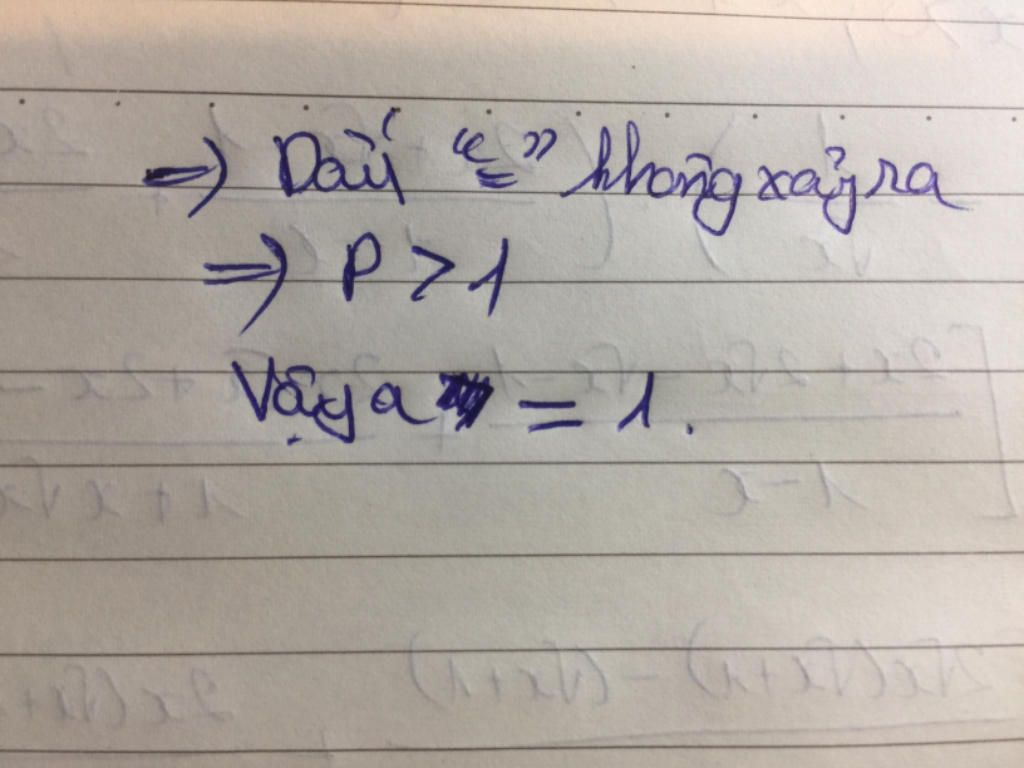 => Dấu "=" không xảy ra
=> P > 1
Vậy a = 1.